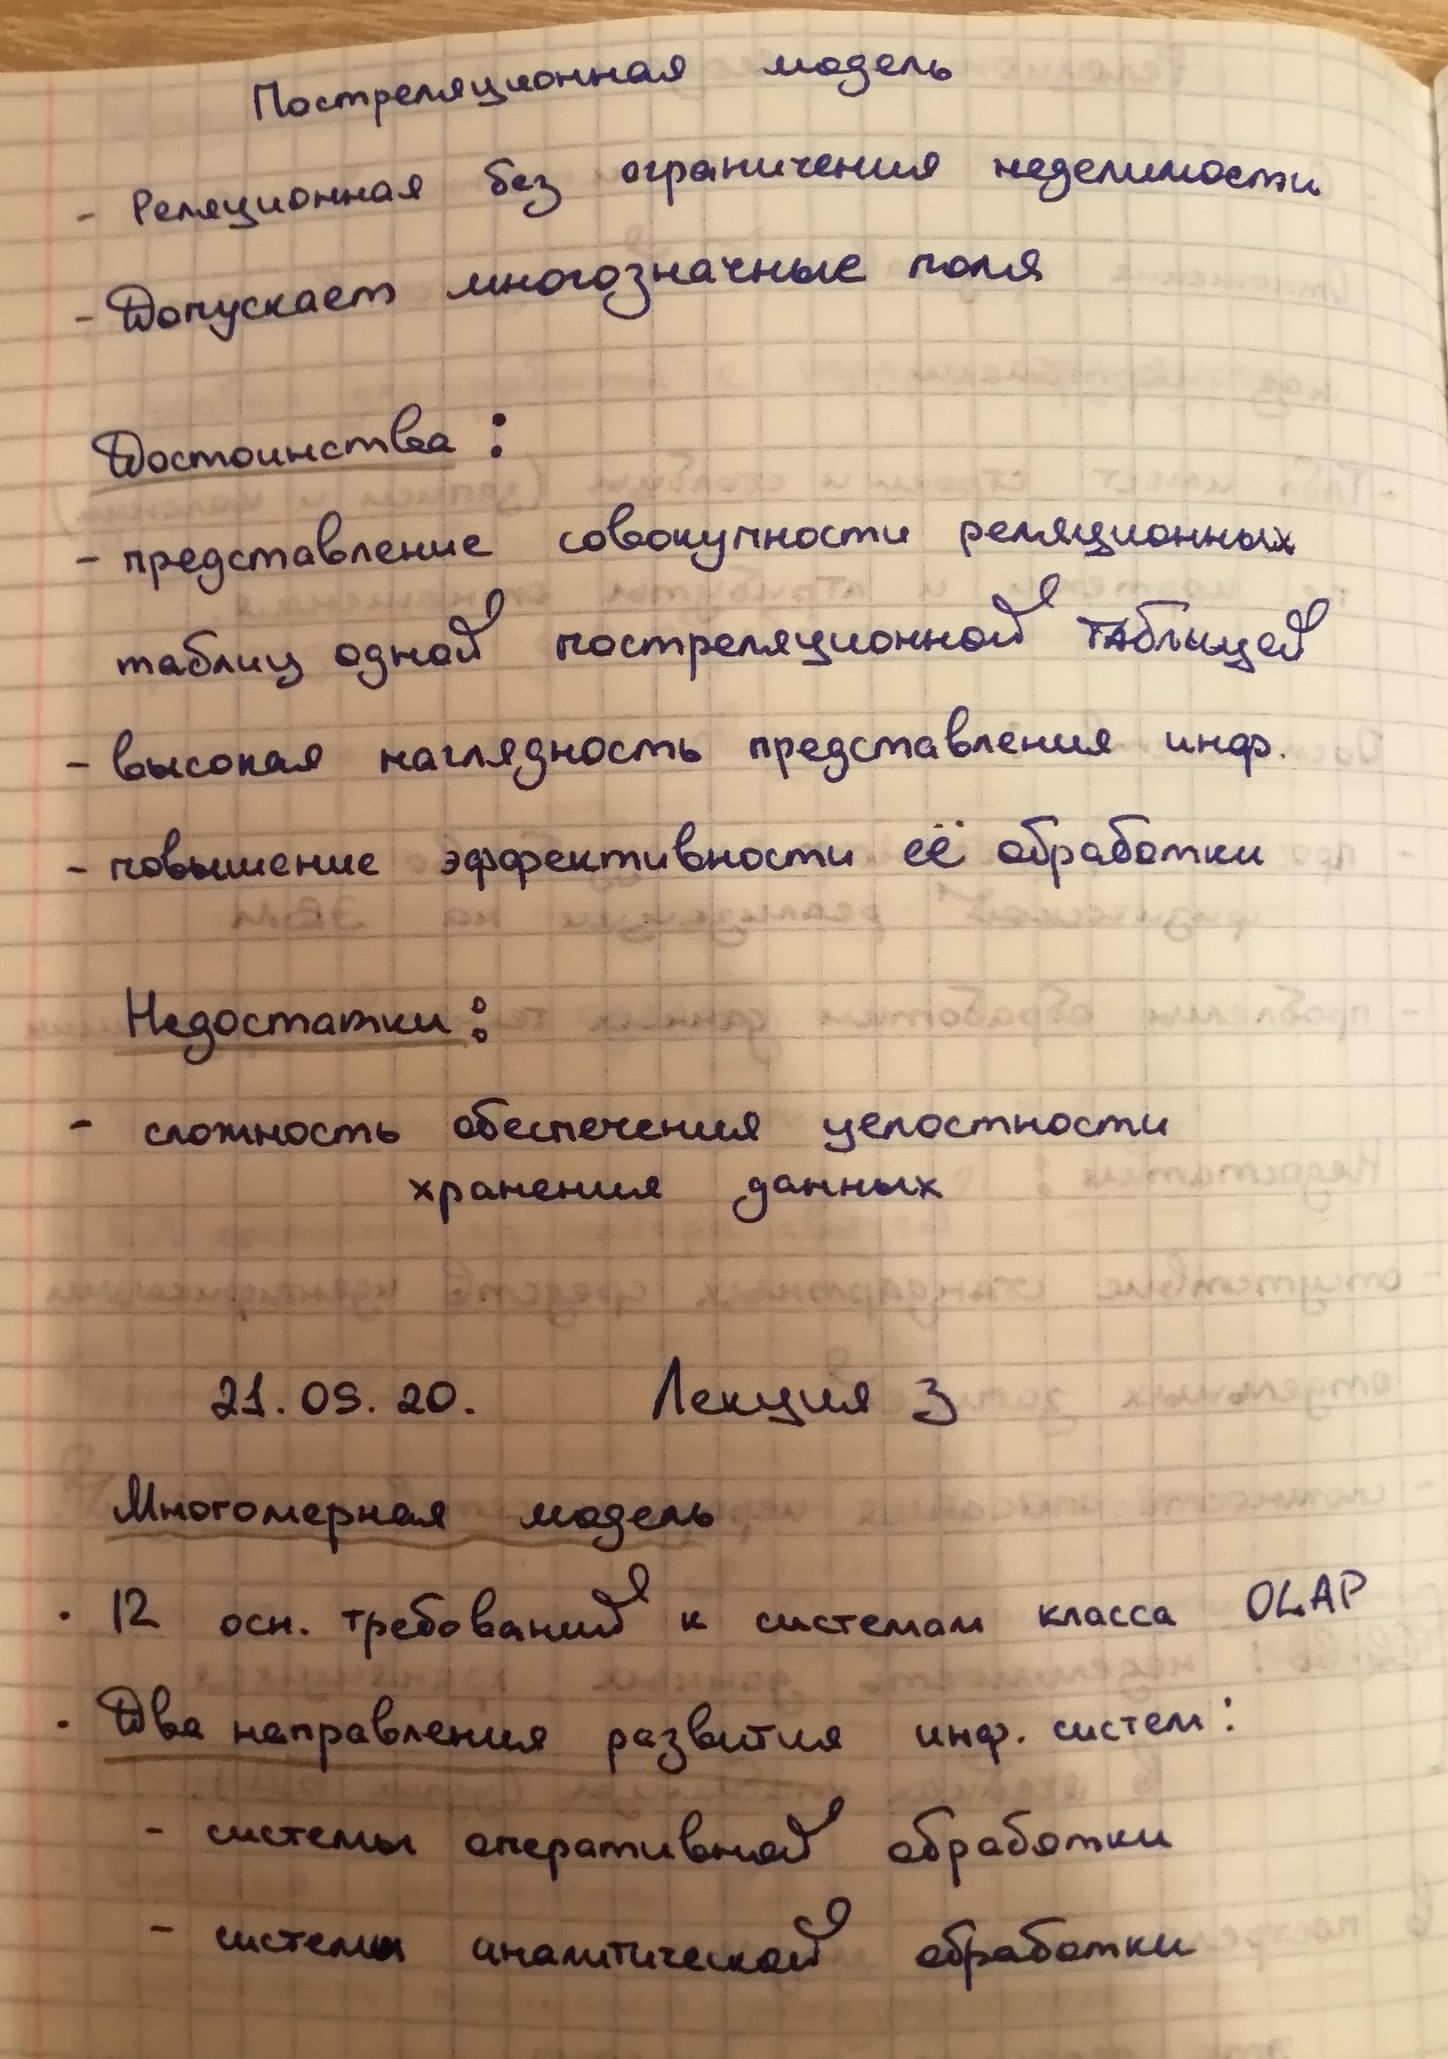 Постреляционная модель
- Реляционная без ограничения неделимости
- Допускает многозначные поля
Достоинства:
- представление совокупности реляционных
таблиц одной постреляционной таблицей
- высокая наглядность представления инф.
- повышение эффективности её обработки
Недостатки:
- сложность обеспечения целостности
хранения данных
21.09.20. Лекция 3
Многомерная модель
· 12 осн. требований к системам класса OLAP
· Два направления развития инф. систем:
- системы оперативной обработки
- системы аналитической обработки